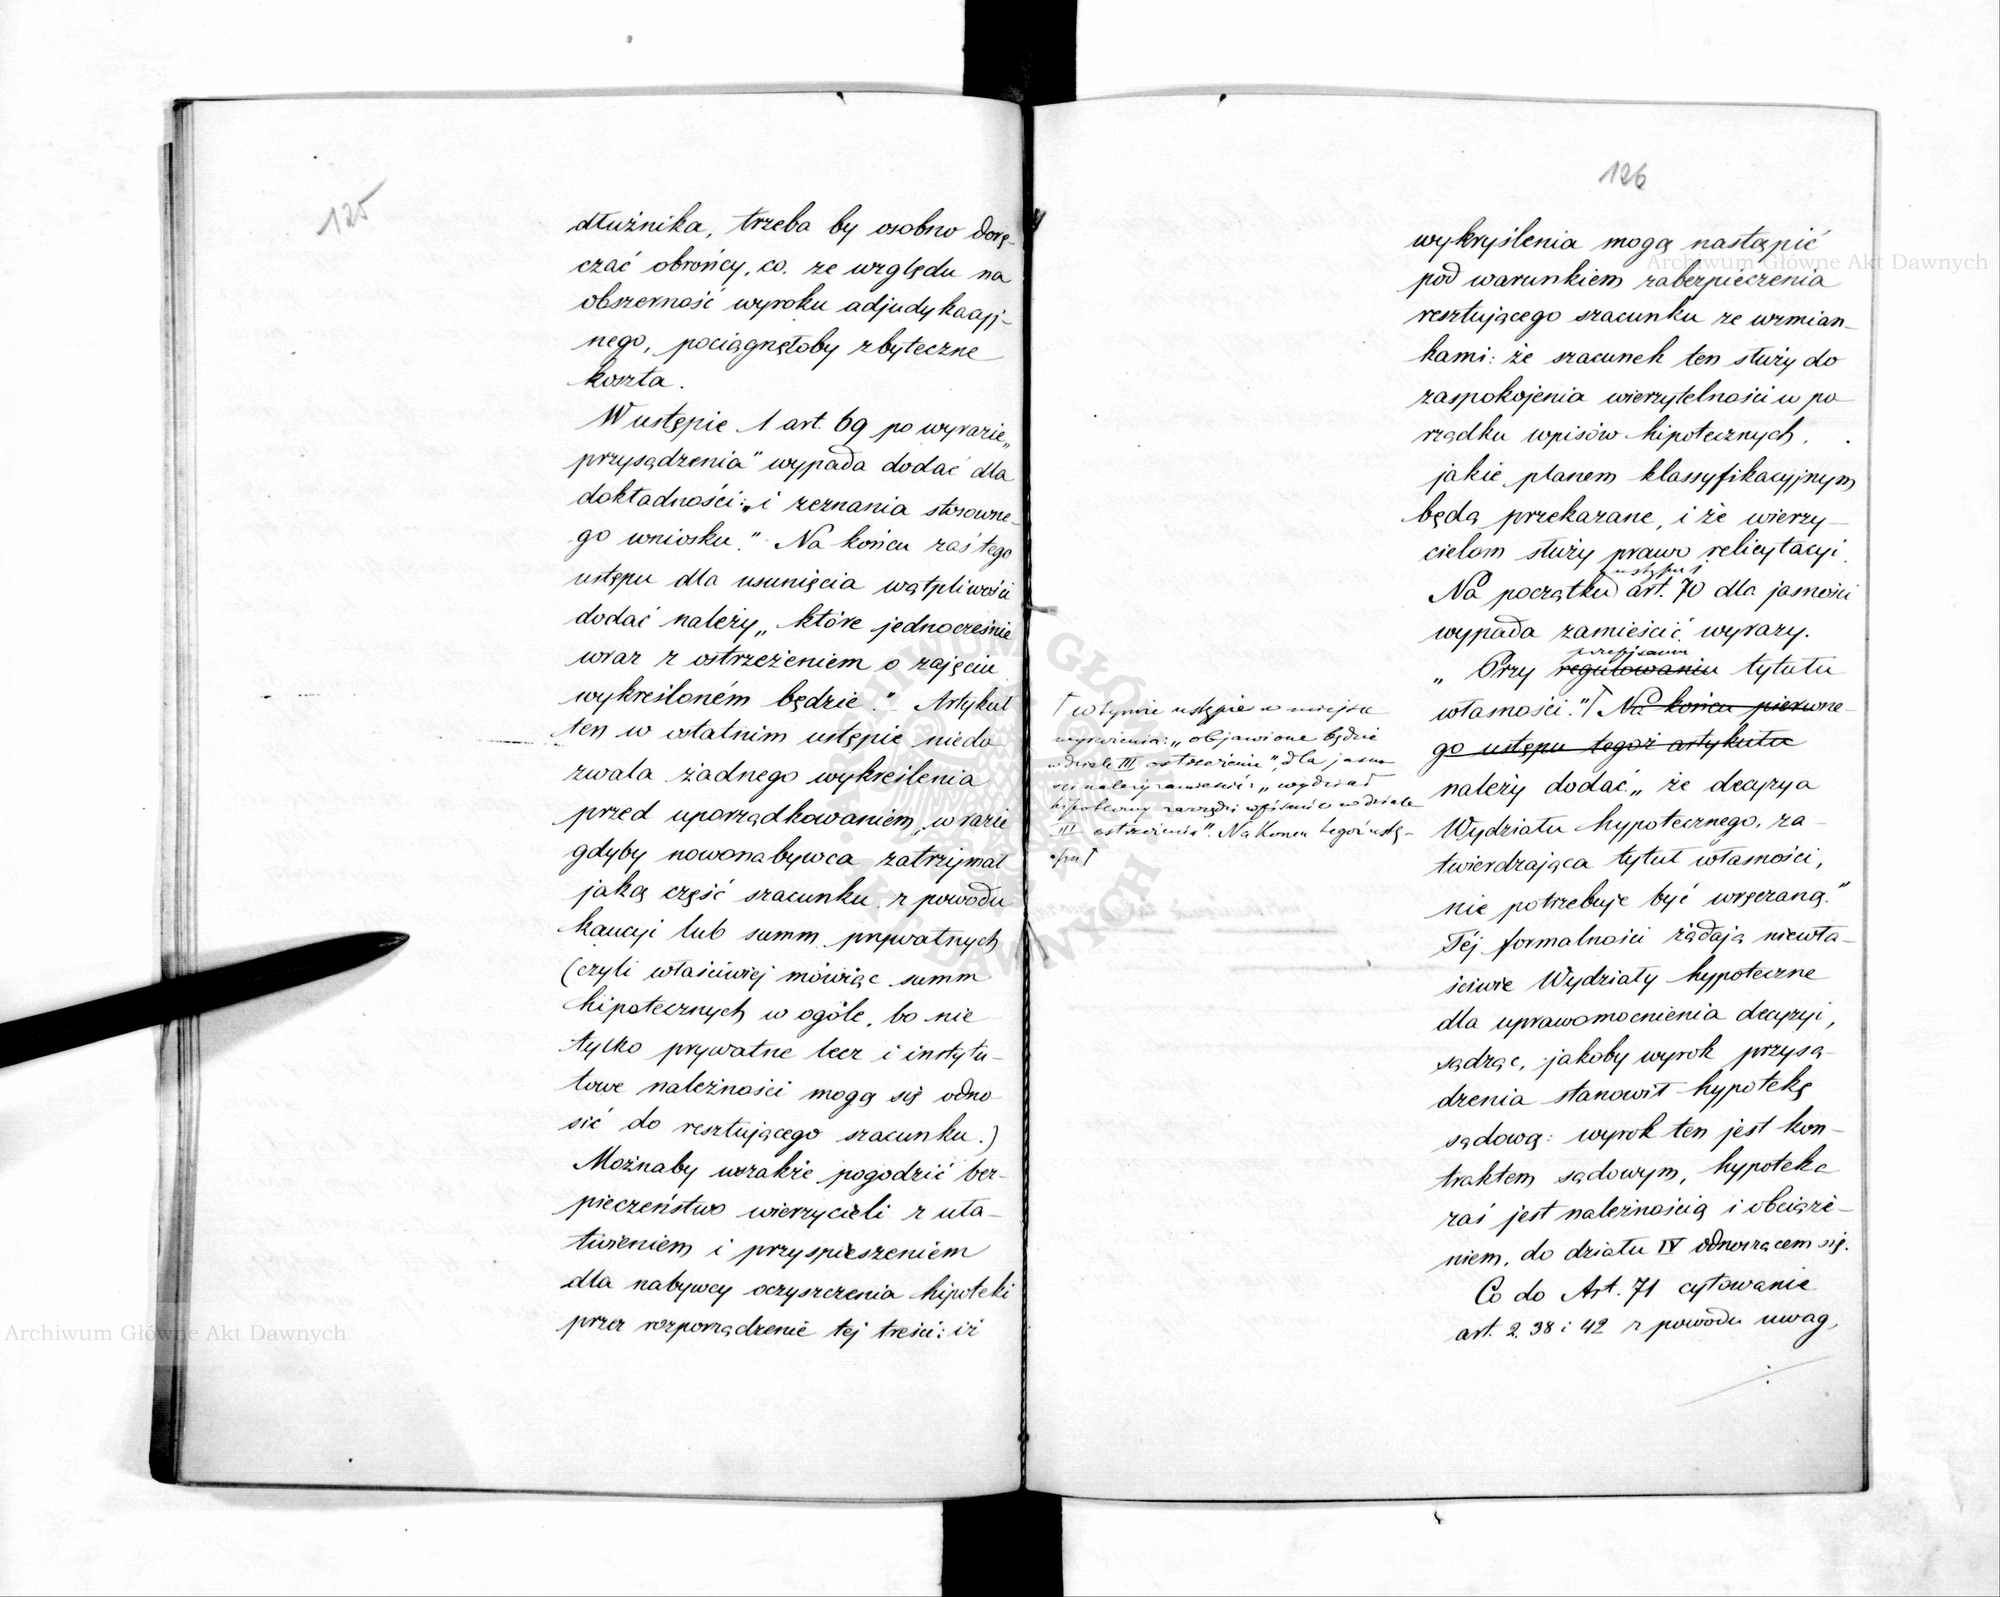 125
dłużnika, trzeba by osobno dorę-
czać obrońcy, co, ze względu na
obszerność wyroku adjudykacyj-
nego, pociągnęłoby zbyteczne
koszta.
W ustępie 1 art. 69 po wyrazie „
przysądzenia" wypada dodać dla
dokładności: „i zeznania stosowne-
go wniosku." Na końcu zaś tego
ustępu dla usunięcia wątpliwości
dodać należy „ które jednocześnie
wraz z ostrzeżeniem o zajęciu
wykreśloném będzie." Artykuł
ten w ostatnim ustępie niedo
zwala żadnego wykreślenia
przed uporządkowaniem, w razie
gdyby nowonabywca zatrzymał
jaką część szacunku z powodu
kaucyi lub summ prywatnych
(czyli właściwiej mówiąc summ
hipotecznych w ogóle, bo nie
tylko prywatne lecz i instytu-
towe należności mogą się odno
sić do resztującego szacunku.)
Możnaby wszakże pogodzić bez-
pieczeństwo wierzycieli z uła-
twieniem i przyspieszeniem
dla nabywcy oczyszczenia hipoteki
przez rozporządzenie tej treści: iż
126
wykryślenia mogą nastąpić
pod warunkiem zabezpieczenia
resztującego szacunku ze wzmian-
kami: że szacunek ten służy do
zaspokojenia wierzytelności w po
rządku wpisów hipotecznych,
jakie planem klassyfikacyjnym
będą przekazane, i że wierzy-
cielom służy prawo relicytacyi.
ustępu 1
Na początku art. 70 dla jasności
wypada zamieścić wyrazy.
przepisaniu
„ Przy regulowaniu tytułu
własności." Na końcu pierwsze-
go ustępu tegoż artykułu
należy dodać „ że decyzya
Wydziału hypotecznego, za-
twierdzająca tytuł własności,
nie potrzebuje być wręczaną."
Téj formalności żądają niewła-
ściwie Wydziały hypoteczne
dla uprawomocnienia decyzyi,
sądząc, jakoby wyrok przysą-
dzenia stanowił hypotekę
sądową: wyrok ten jest kon-
traktem sądowym, hypoteka
zaś jest należnością i obciąże-
niem, do działu IV odnoszącem się.
Co do Art. 71 cytowanie
art. 2. 38 i 42 z powodu uwag,
w tymże ustępie w miejsce
wyrażenia: „objawione będzie
w dziale III ostrzeżenie", dla jasno
ści należy zamieścić: „wydział
hipoteczny zarządzi wpisanie w dziale
III ostrzeżenia". Na końcu tegoż ustę-
pu
Archiwum Główne Akt Dawnych
Archiwum Główne Akt Dawnych
ARCHIWUM GŁÓWNE AKT DAWNYCH